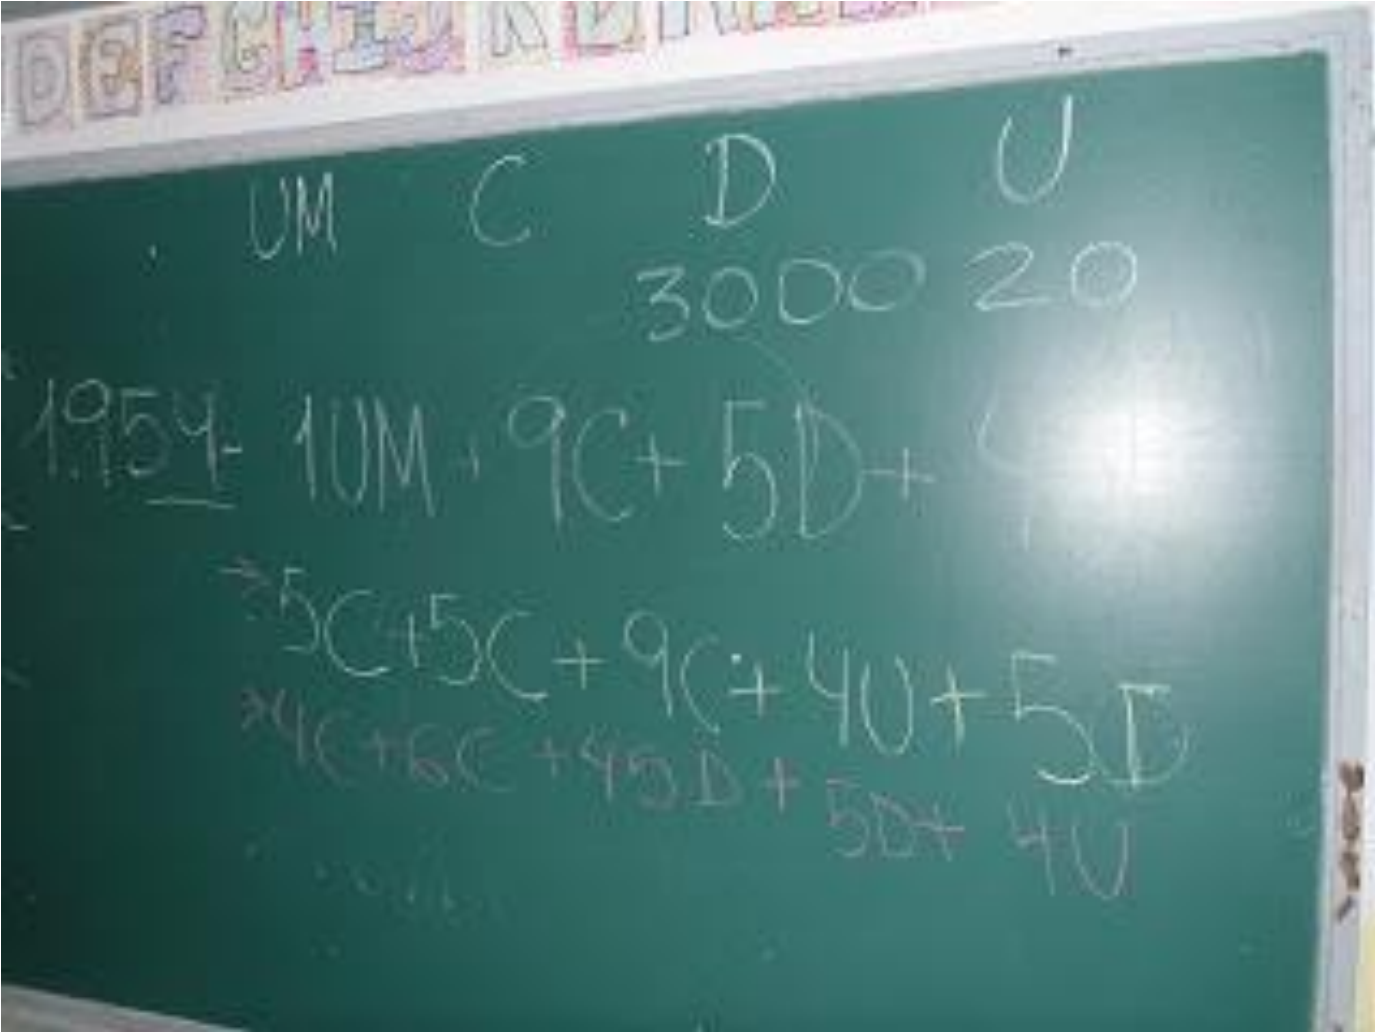 D E F G H I J K L M N
UM C D U
3000 20
1.954= 1UM + 9C + 5D + 4
→ 5C + 5C + 9C + 4U + 5D
→ 4C + 6C + 45D + 5D + 4U